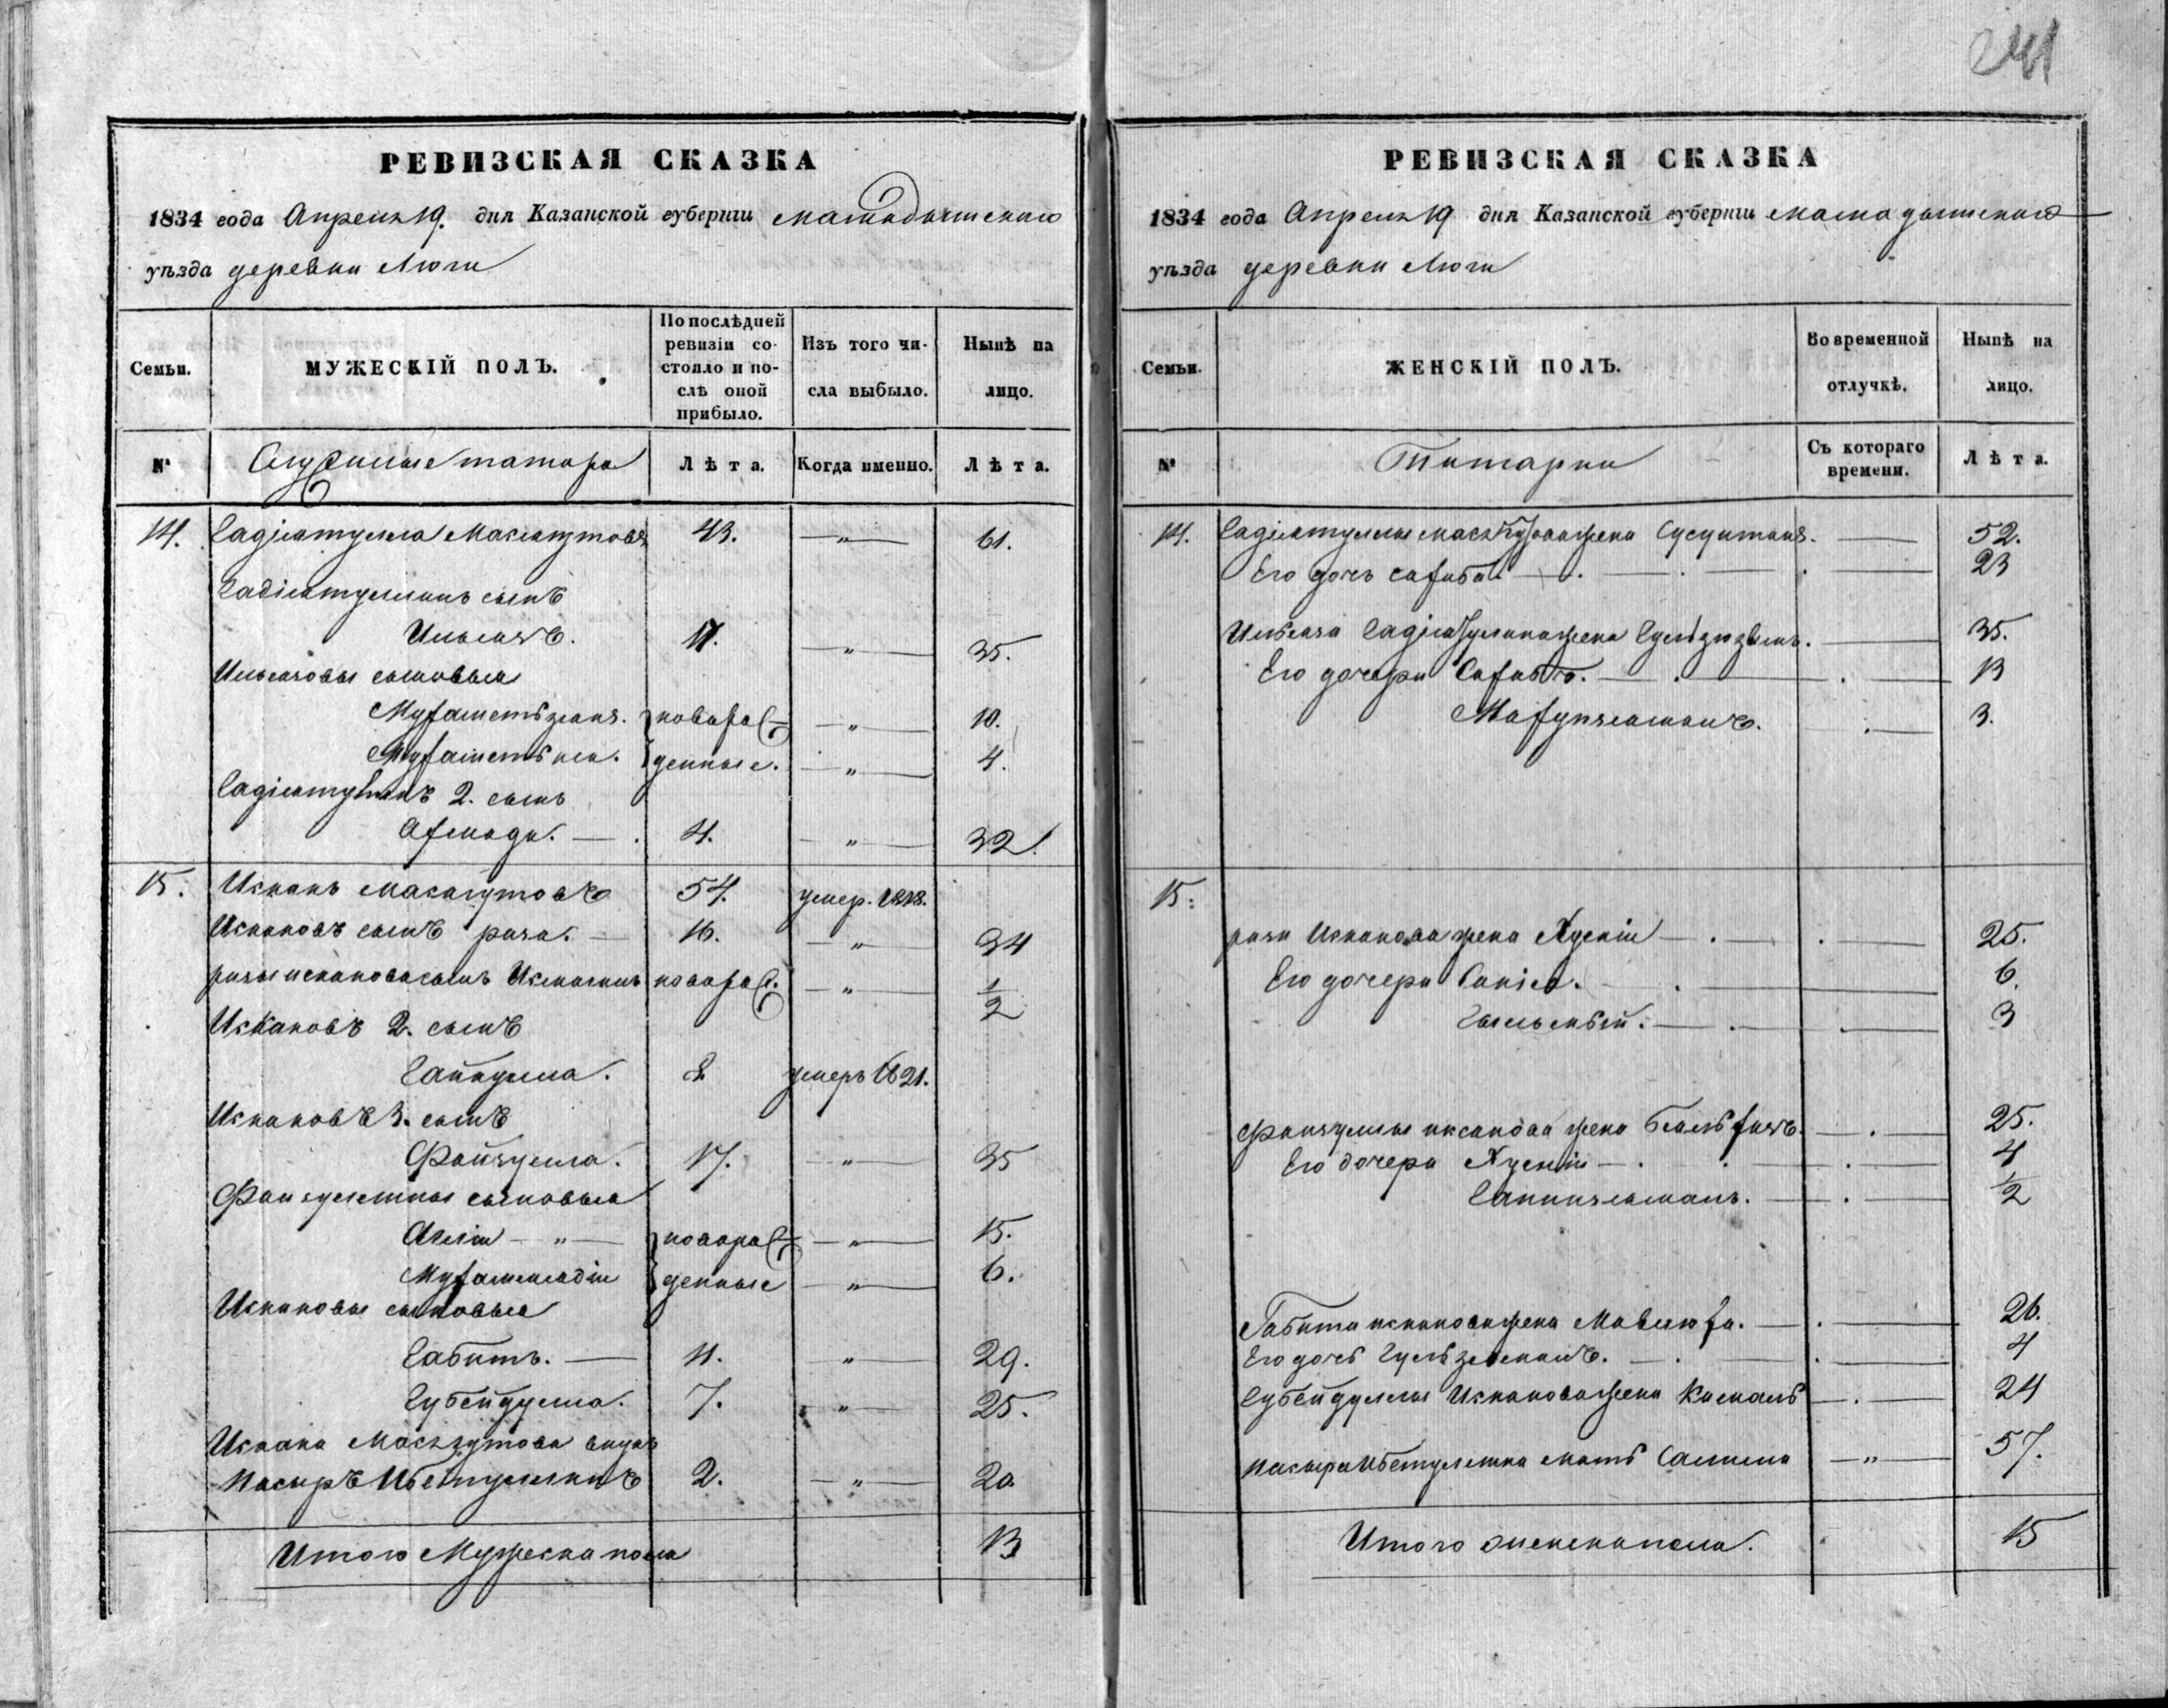 241
РЕВИЗСКАЯ СКАЗКА
1834 года Апреля 19. дня Казанской губернiи мамадышскаго
уѣзда деревни Люги
Семьи.
МУЖЕСКIЙ ПОЛЪ.
По послѣдней ревизiи состояло и послѣ оной прибыло.
Изъ того числа выбыло.
Нынѣ на лицо.
№
Служилые татара
Лѣта.
Когда именно.
Лѣта.
14. Садiатулла Максютовъ 43. — " — 61.
Садiатуллинъ сынъ
Ильясъ. 17. — " — 35.
Ильясовы сыновья
Мухаметьзянъ. } новорож — " — 10.
} денные. — " — 4.
Садiатуллинъ 2. сынъ
Ахмади. — . 4. — " — 32.
15. Искакъ Максютовъ 54. умер. 1818.
Искаковъ сынъ раза. — 16. — " — 34
разы искакова сынъ новорож. — " — 1/2
Искаковъ 2. сынъ
8 умеръ 1821.
Искаковъ 3. сынъ
Файзулла. 17. " — 35
Файзуллины сыновья
— " — } новорож — " — 15.
} денные — " — 6.
Искаковы сыновья
Габитъ. — 11. " — 29.
Губейдулла. 7. " — 25.
Искака Максютова внукъ
Насыръ Ибетуллинъ 2. — " — 20.
Итого Мужеска пола 13
РЕВИЗСКАЯ СКАЗКА
1834 года Апреля 19 дня Казанской губернiи мамадышскаго
уѣзда деревни Люги
Семьи.
ЖЕНСКIЙ ПОЛЪ.
Во временной отлучкѣ.
Нынѣ на лицо.
№
Татарки
Съ котораго времени.
Лѣта.
14. Садiатуллы жена — 52.
Его дочь Сахиба. — 23
Ильяса Садiатуллина жена — 35.
Его дочери — 13
— 3.
15:
разы Искакова жена Хуснiи — 25.
Его дочери Санiя. — 6.
— 3
Файзуллы искакова жена — 25.
Его дочери Хуснiи — 4
— 1/2
Габита искакова жена — 26.
Его дочь — 4
Губейдуллы Искакова жена Камаль — 24
насыра Ибетуллина мать Салима — " — 57.
Итого женска пола. 15